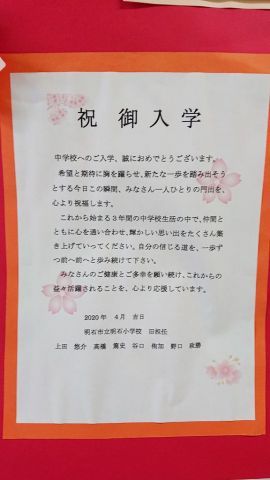 祝 御 入 学
中学校へのご入学、誠におめでとうございます。
希望と期待に胸を躍らせ、新たな一歩を踏み出そう
とする今日この瞬間、みなさん一人ひとりの門出を、
心より祝福します。
これから始まる３年間の中学校生活の中で、仲間と
ともに心を通い合わせ、輝かしい思い出をたくさん築
き上げていってください。自分の信じる道を、一歩ず
つ前へ前へと歩み続けて下さい。
みなさんのご健康とご多幸を願い続け、これからの
益々活躍されることを、心より応援しています。
2020 年 4月 吉日
明石市立明石小学校 旧担任
上田 悠介 高橋 篤史 谷口 侑加 野口 政勝